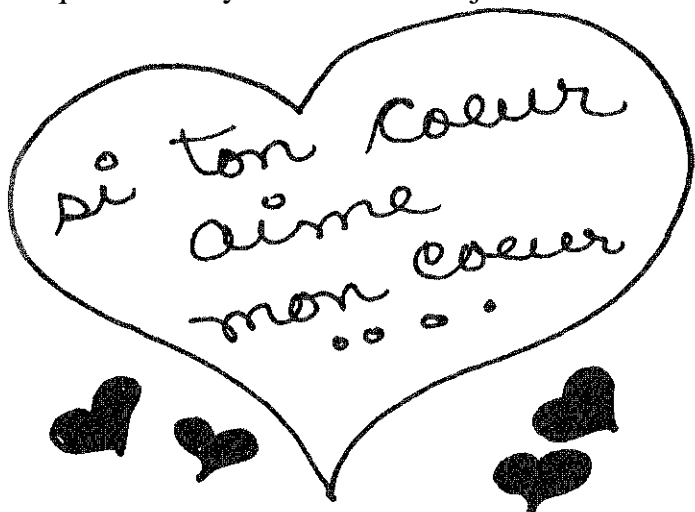 si ton coeur
aime
mon coeur
....